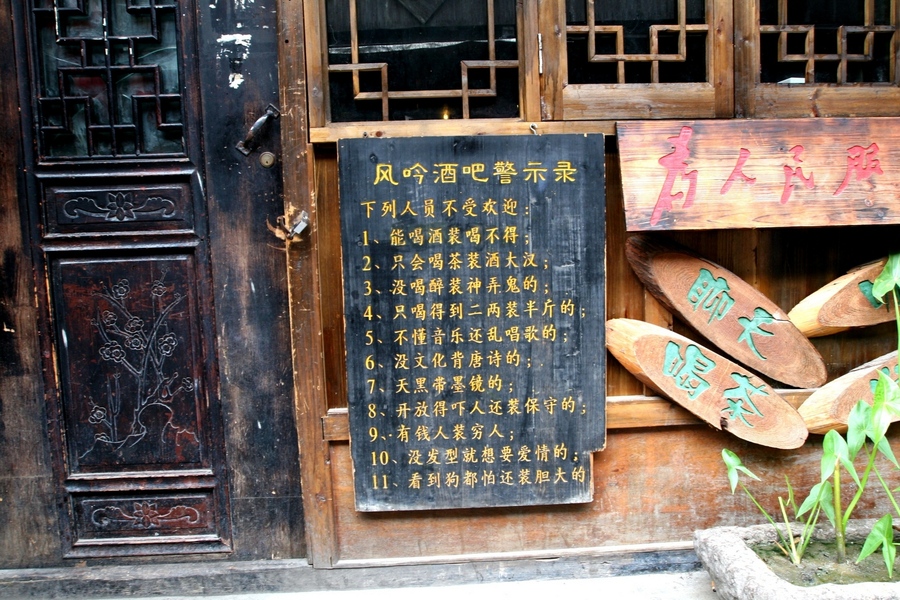 风吟酒吧警示录
下列人员不受欢迎：
1、能喝酒装喝不得；
2、只会喝茶装酒大汉；
3、没喝醉装神弄鬼的；
4、只喝得到二两装半斤的；
5、不懂音乐还乱唱歌的；
6、没文化背唐诗的；
7、天黑带墨镜的；
8、开放得吓人还装保守的；
9、有钱人装穷人；
10、没发型就想要爱情的；
11、看到狗都怕还装胆大的
为人民服
聊天
喝茶